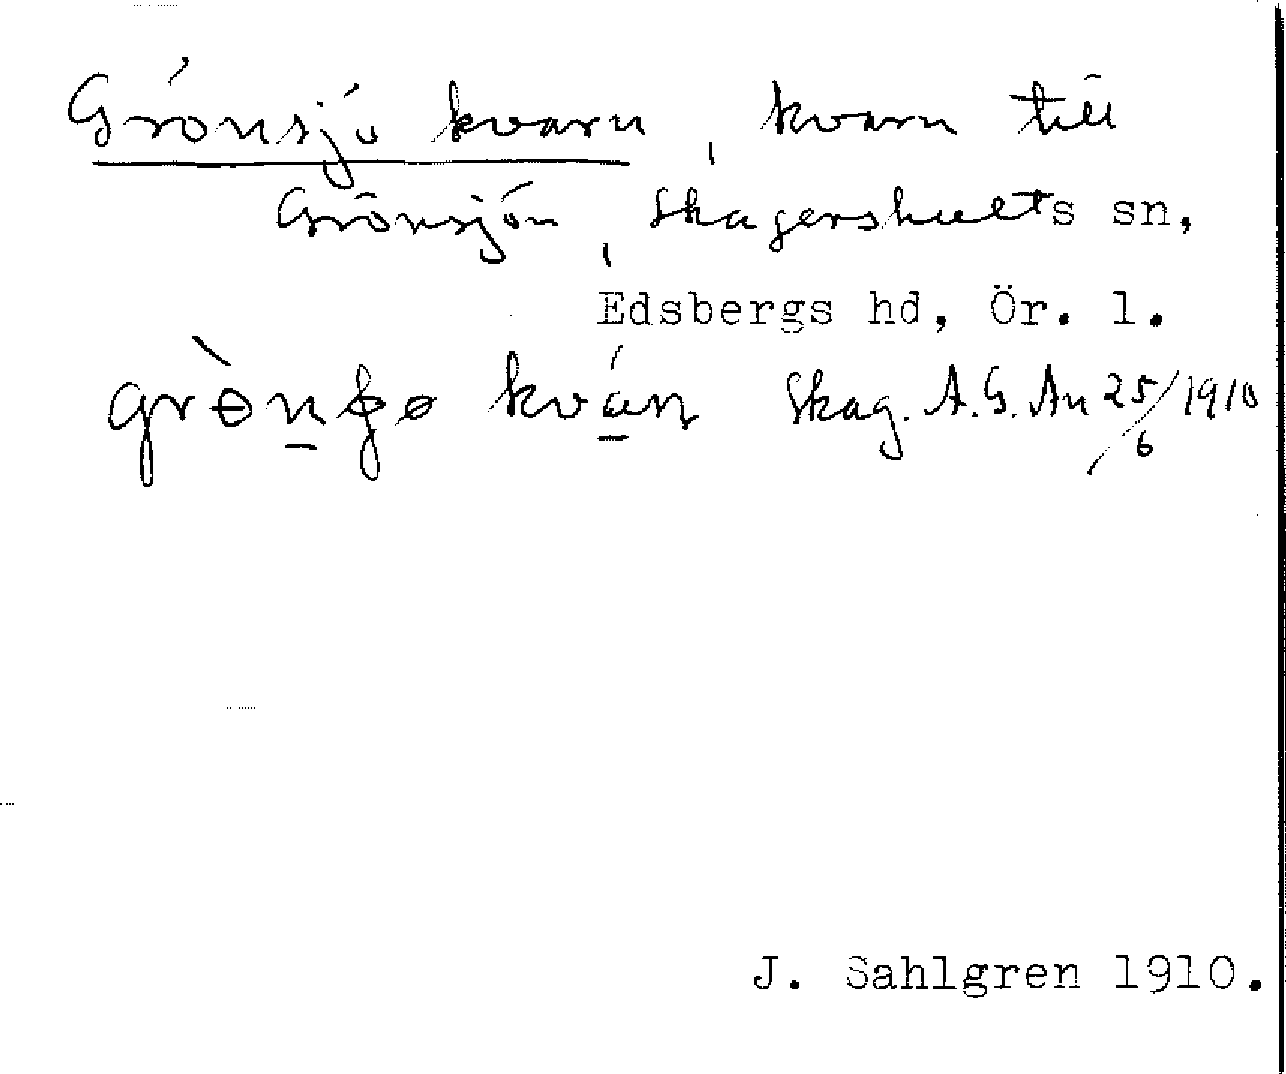 Grönsjö kvarn, kvarn till
Grönsjön, Skagershults sn,
Edsbergs hd, Ör. l.
Skag. A.G. An 25/6 1910
J. Sahlgren 1910.